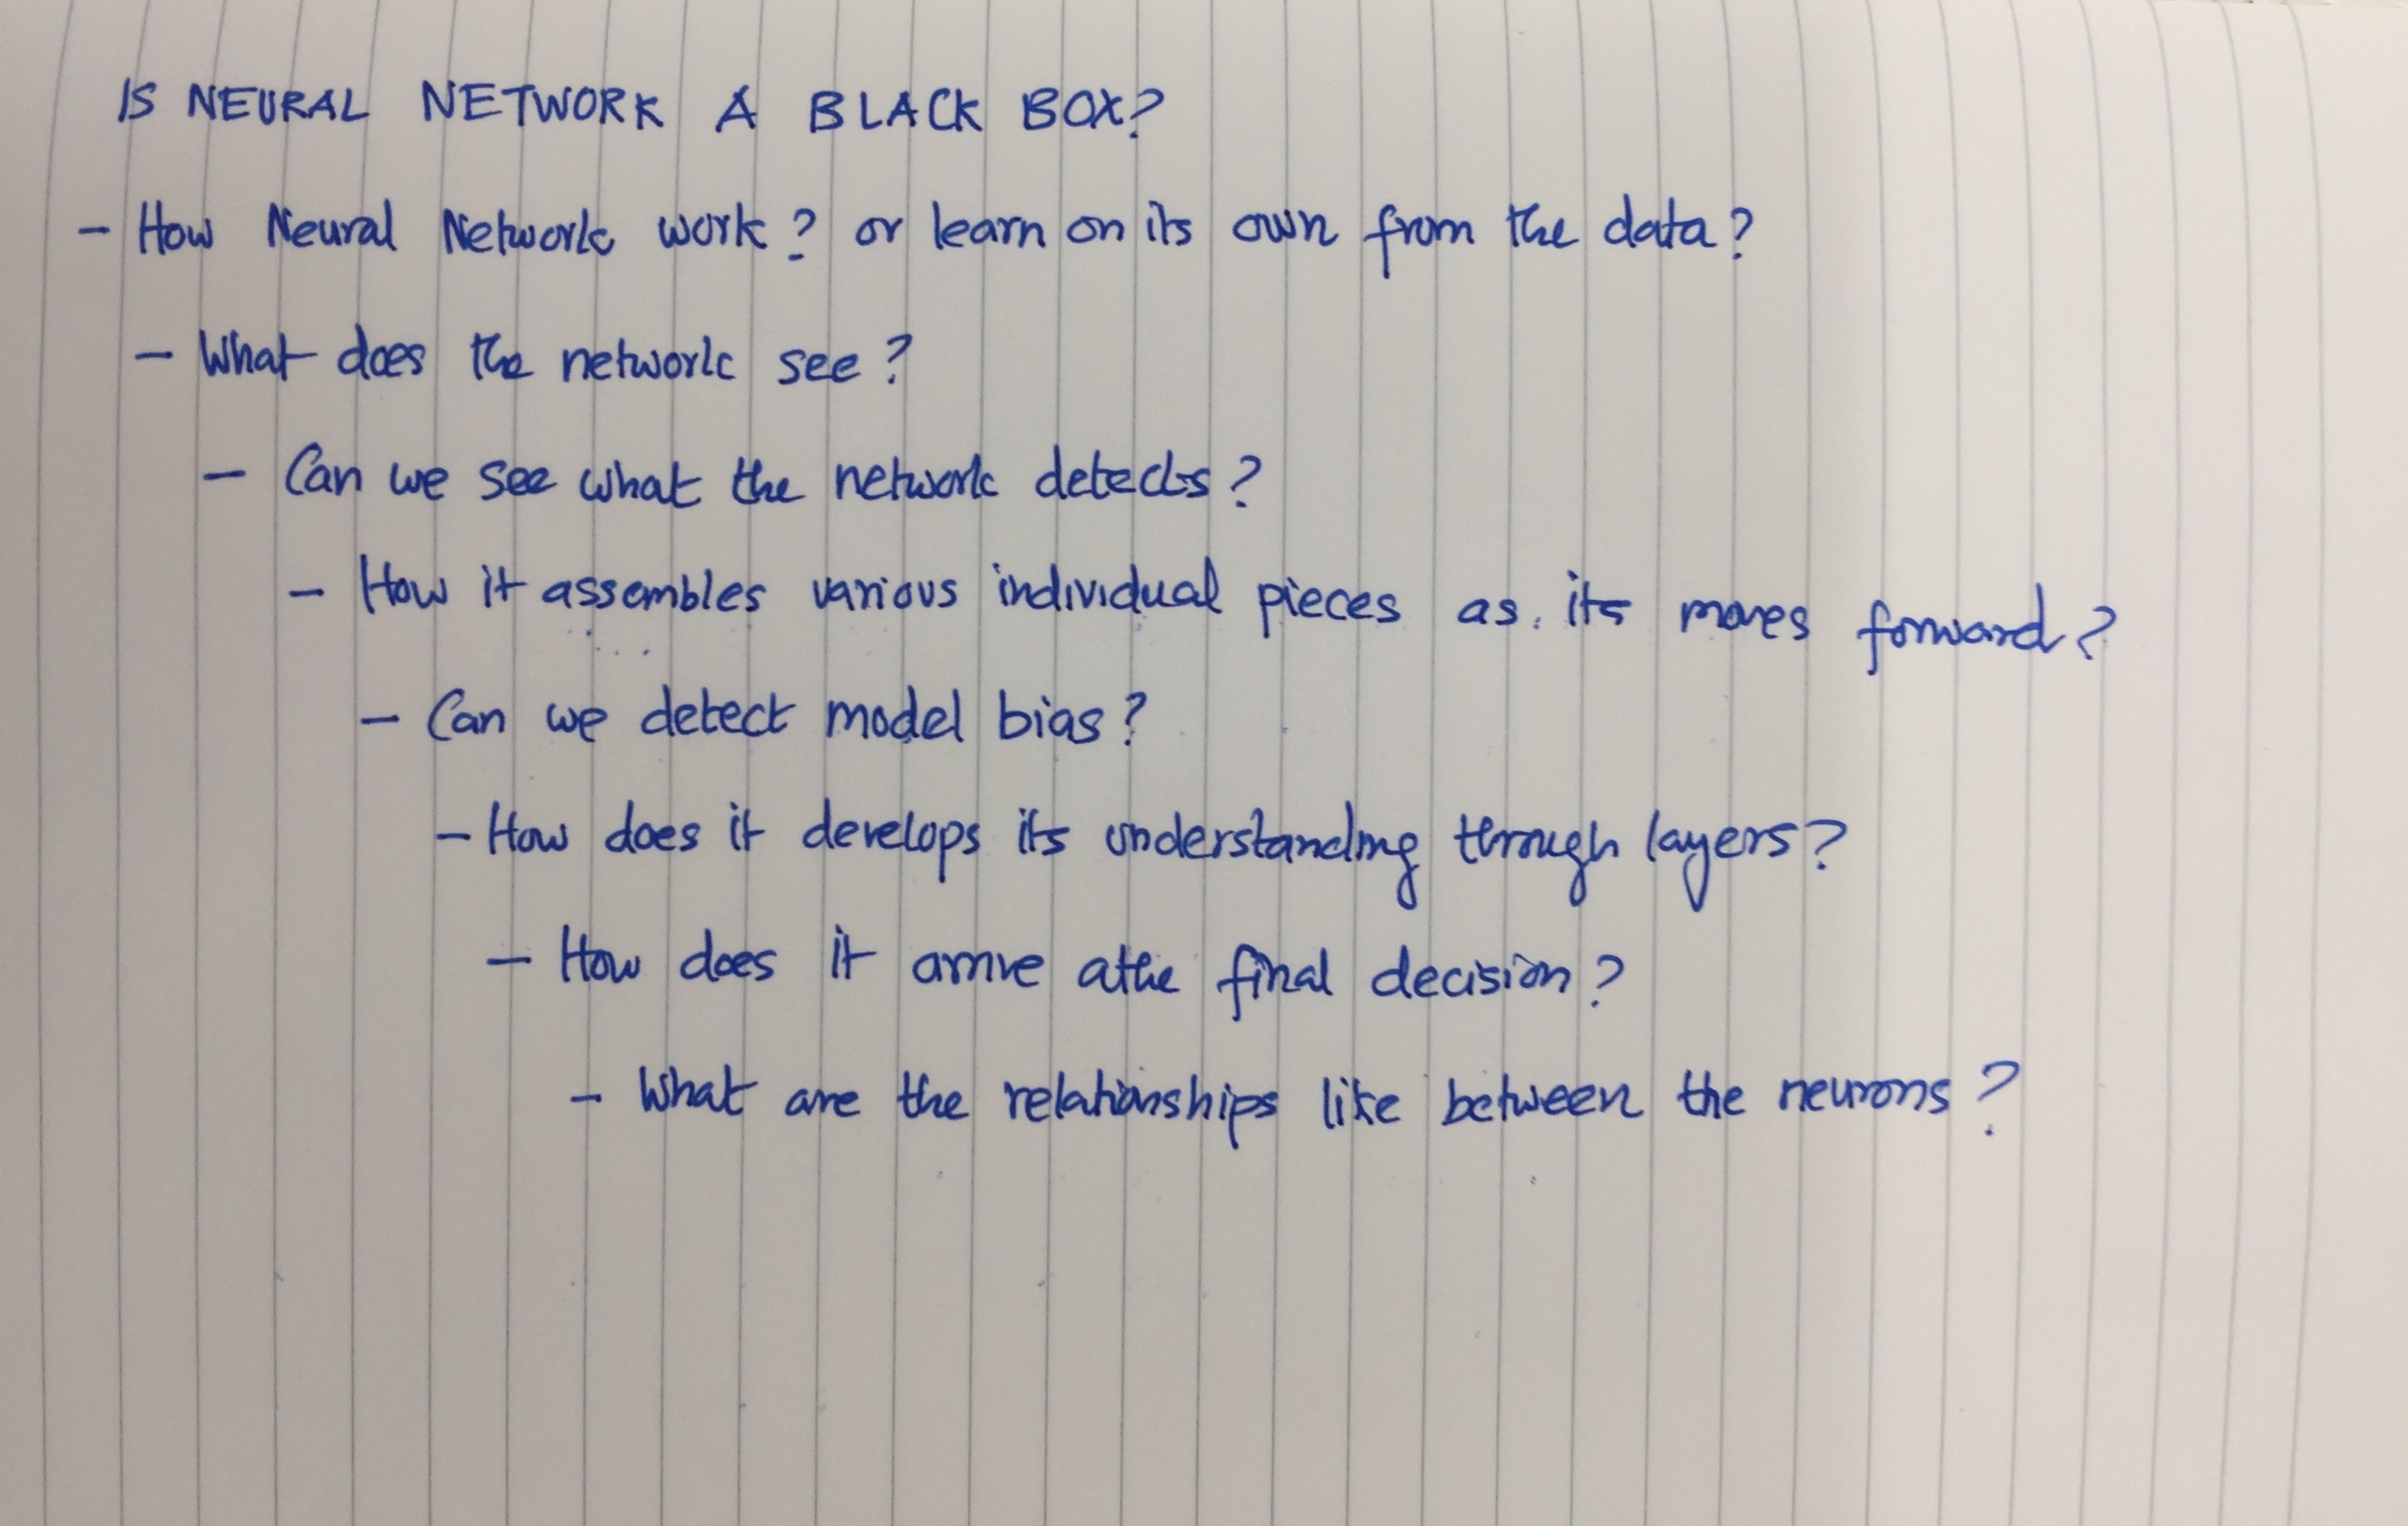 IS NEURAL NETWORK A BLACK BOX?
- How Neural Network work? or learn on its own from the data?
- What does the network see?
- Can we see what the network detects?
- How it assembles various individual pieces as its moves forward?
- Can we detect model bias?
- How does it develops its understanding through layers?
- How does it arrive athe final decision?
- What are the relationships like between the neurons?